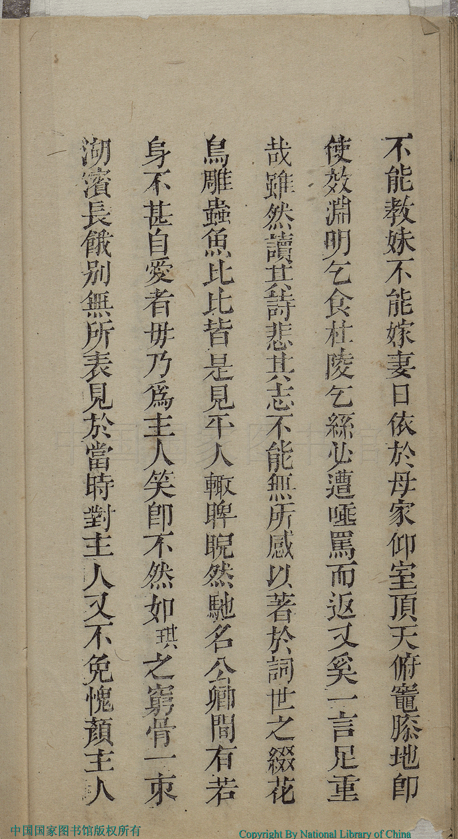 不能教妹不能嫁妻日依於母家仰室頂天俯竈膝地即
使效淵明乞食杜陵乞絲必遭唾罵而返又奚一言足重
哉雖然讀其詩悲其志不能無所感以著於詞世之綴花
鳥雕蟲魚比比皆是見平人輙睥睨然馳名公卿間有若
身不甚自愛者毋乃爲主人笑卽不然如琪之窮骨一束
湖濱長餓别無所表見於當時對主人又不免愧顏主人
中国国家图书馆版权所有
Copyright By National Library of China